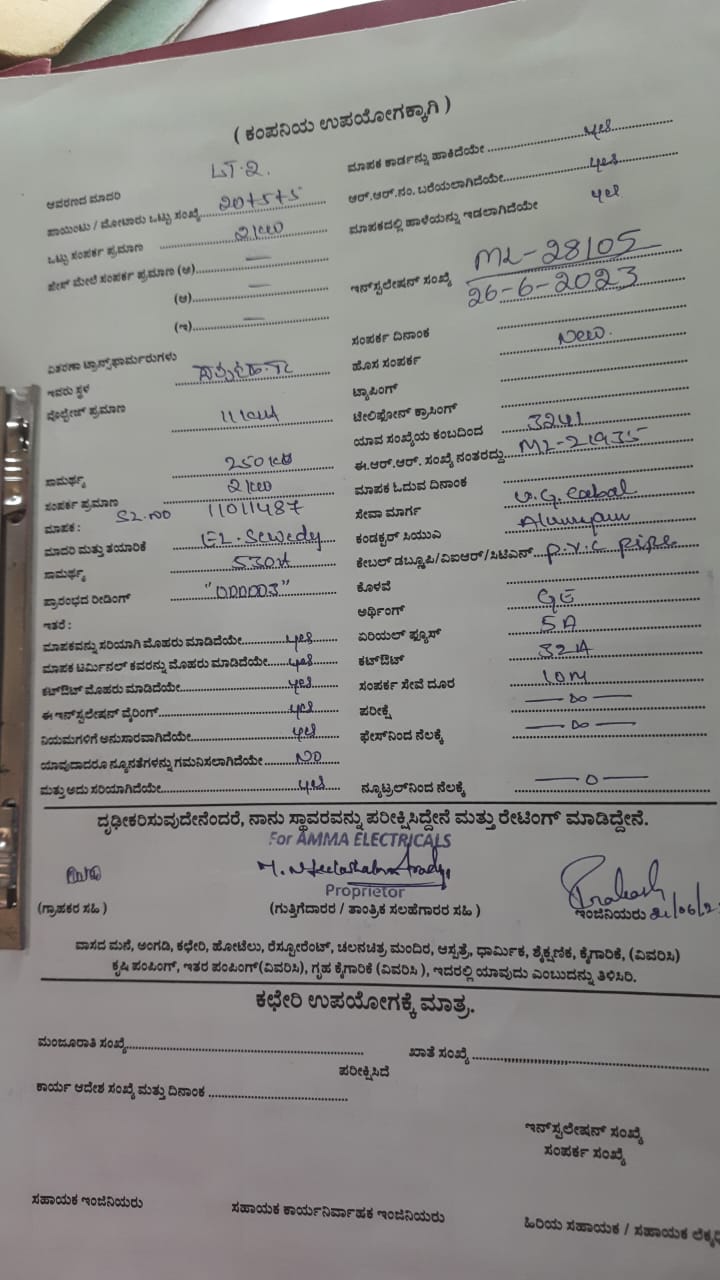 ( ಕಂಪನಿಯ ಉಪಯೋಗಕ್ಕಾಗಿ )
ಆವರಣದ ಮಾದರಿ LT-2.
ಪಾಯಿಂಟು / ಮೋಟಾರು ಒಟ್ಟು ಸಂಖ್ಯೆ 20+5+5
ಒಟ್ಟು ಸಂಪರ್ಕ ಪ್ರಮಾಣ 2KW
ಫೇಸ್ ಮೇಲೆ ಸಂಪರ್ಕ ಪ್ರಮಾಣ (ಅ) —
(ಆ) —
(ಇ) —
ವಿತರಣಾ ಟ್ರಾನ್ಸ್‌ಫಾರ್ಮರುಗಳು
ಇವರು ಸ್ಥಳ
ವೊಲ್ಟೇಜ್ ಪ್ರಮಾಣ
ಸಾಮರ್ಥ್ಯ 250
ಸಂಪರ್ಕ ಪ್ರಮಾಣ 2KW
ಮಾಪಕ : SL.NO 11011487
ಮಾದರಿ ಮತ್ತು ತಯಾರಿಕೆ EL.Sewedy
ಸಾಮರ್ಥ್ಯ 530A
ಪ್ರಾರಂಭದ ರೀಡಿಂಗ್ "000003"
ಇತರೆ :
ಮಾಪಕವನ್ನು ಸರಿಯಾಗಿ ಮೊಹರು ಮಾಡಿದೆಯೇ yes
ಮಾಪಕ ಟರ್ಮಿನಲ್ ಕವರನ್ನು ಮೊಹರು ಮಾಡಿದೆಯೇ yes
ಕಟ್‌ಔಟ್ ಮೊಹರು ಮಾಡಿದೆಯೇ yes
ಈ ಇನ್‌ಸ್ಟಲೇಷನ್ ವೈರಿಂಗ್ yes
ನಿಯಮಗಳಿಗೆ ಅನುಸಾರವಾಗಿದೆಯೇ yes
ಯಾವುದಾದರೂ ನ್ಯೂನತೆಗಳನ್ನು ಗಮನಿಸಲಾಗಿದೆಯೇ NO
ಮತ್ತು ಅದು ಸರಿಯಾಗಿದೆಯೇ yes
ಮಾಪಕ ಕಾರ್ಡನ್ನು ಹಾಕಿದೆಯೇ yes
ಆರ್.ಆರ್.ನಂ. ಬರೆಯಲಾಗಿದೆಯೇ yes
ಮಾಪಕದಲ್ಲಿ ಹಾಳೆಯನ್ನು ಇಡಲಾಗಿದೆಯೇ yes
ಇನ್‌ಸ್ಟಲೇಷನ್ ಸಂಖ್ಯೆ ML-28105
26-6-2023
ಸಂಪರ್ಕ ದಿನಾಂಕ
ಹೊಸ ಸಂಪರ್ಕ New.
ಟ್ಯಾಪಿಂಗ್
ಟೇಲಿಫೋನ್ ಕ್ರಾಸಿಂಗ್
ಯಾವ ಸಂಖ್ಯೆಯ ಕಂಬದಿಂದ 3241
ಈ.ಆರ್.ಆರ್. ಸಂಖ್ಯೆ ನಂತರದ್ದು ML-21935
ಮಾಪಕ ಓದುವ ದಿನಾಂಕ
ಸೇವಾ ಮಾರ್ಗ U.G. Cabal
ಕಂಡಕ್ಟರ್ ಸಿಯುಎ
ಕೇಬಲ್ ಡಬ್ಲೂಪಿ/ವಿಐಆರ್/ಸಿಟಿಎಸ್ P.V.C Pipe
ಕೊಳವೆ
ಅರ್ಥಿಂಗ್ GE
ಏರಿಯಲ್ ಫ್ಯೂಸ್ 5A
ಕಟ್‌ಔಟ್ 32A
ಸಂಪರ್ಕ ಸೇವೆ ದೂರ 10M
ಪರೀಕ್ಷೆ — ∞ —
ಫೇಸ್‌ನಿಂದ ನೆಲಕ್ಕೆ — ∞ —
ನ್ಯೂಟ್ರಲ್‌ನಿಂದ ನೆಲಕ್ಕೆ — 0 —
ದೃಢೀಕರಿಸುವುದೇನೆಂದರೆ, ನಾನು ಸ್ಥಾವರವನ್ನು ಪರೀಕ್ಷಿಸಿದ್ದೇನೆ ಮತ್ತು ರೇಟಿಂಗ್ ಮಾಡಿದ್ದೇನೆ.
For AMMA ELECTRICALS
Proprietor
Prakash
(ಗ್ರಾಹಕರ ಸಹಿ )
(ಗುತ್ತಿಗೆದಾರರ / ತಾಂತ್ರಿಕ ಸಲಹೆಗಾರರ ಸಹಿ )
ಇಂಜಿನಿಯರು
ವಾಸದ ಮನೆ, ಅಂಗಡಿ, ಕಛೇರಿ, ಹೋಟೆಲು, ರೆಸ್ಟೋರೆಂಟ್, ಚಲನಚಿತ್ರ ಮಂದಿರ, ಆಸ್ಪತ್ರೆ, ಧಾರ್ಮಿಕ, ಶೈಕ್ಷಣಿಕ, ಕೈಗಾರಿಕೆ, (ವಿವರಿಸಿ)
ಕೃಷಿ ಪಂಪಿಂಗ್, ಇತರ ಪಂಪಿಂಗ್(ವಿವರಿಸಿ), ಗೃಹ ಕೈಗಾರಿಕೆ (ವಿವರಿಸಿ ), ಇದರಲ್ಲಿ ಯಾವುದು ಎಂಬುದನ್ನು ತಿಳಿಸಿರಿ.
ಕಛೇರಿ ಉಪಯೋಗಕ್ಕೆ ಮಾತ್ರ.
ಮಂಜೂರಾತಿ ಸಂಖ್ಯೆ
ಖಾತೆ ಸಂಖ್ಯೆ
ಪರೀಕ್ಷಿಸಿದೆ
ಕಾರ್ಯ ಆದೇಶ ಸಂಖ್ಯೆ ಮತ್ತು ದಿನಾಂಕ
ಇನ್‌ಸ್ಟಲೇಷನ್ ಸಂಖ್ಯೆ
ಸಂಪರ್ಕ ಸಂಖ್ಯೆ
ಸಹಾಯಕ ಇಂಜಿನಿಯರು
ಸಹಾಯಕ ಕಾರ್ಯನಿರ್ವಾಹಕ ಇಂಜಿನಿಯರು
ಹಿರಿಯ ಸಹಾಯಕ / ಸಹಾಯಕ